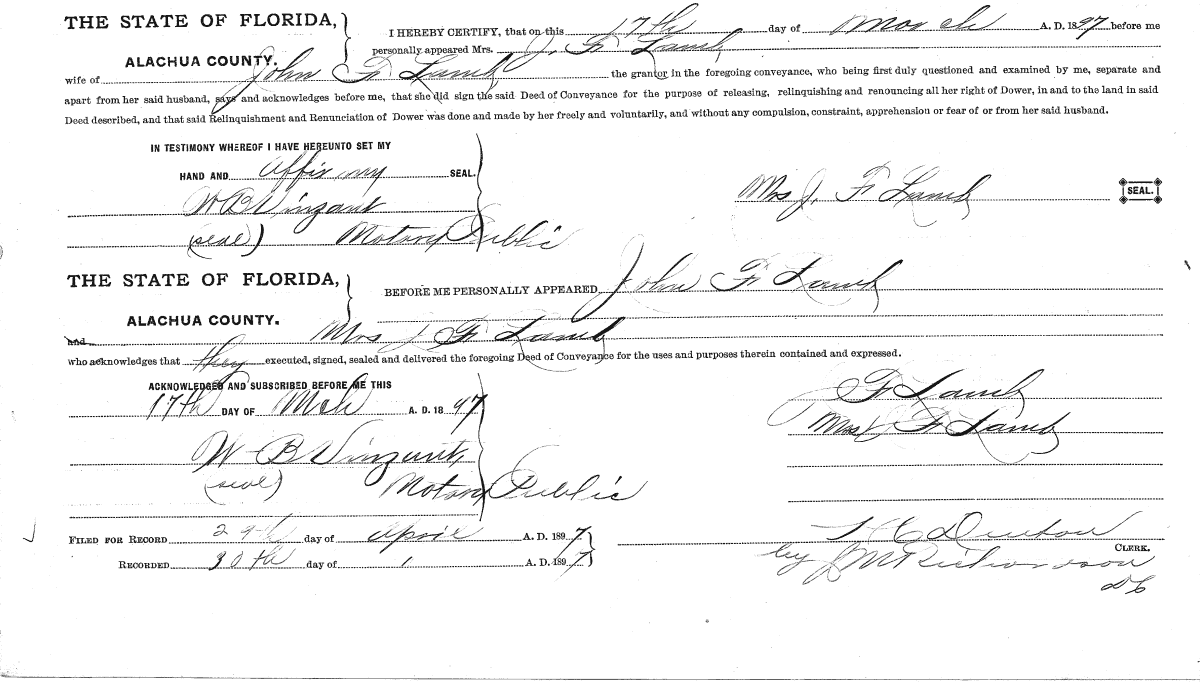 THE STATE OF FLORIDA,
ALACHUA COUNTY.
I HEREBY CERTIFY, that on this 17th day of March A. D. 1897 before me
personally appeared Mrs. J. F Lamb
wife of John F Lamb the grantor in the foregoing conveyance, who being first duly questioned and examined by me, separate and
apart from her said husband, says and acknowledges before me, that she did sign the said Deed of Conveyance for the purpose of releasing, relinquishing and renouncing all her right of Dower, in and to the land in said
Deed described, and that said Relinquishment and Renunciation of Dower was done and made by her freely and voluntarily, and without any compulsion, constraint, apprehension or fear of or from her said husband.
IN TESTIMONY WHEREOF I HAVE HEREUNTO SET MY
HAND AND affix my SEAL.
W B Vinzant
(seal) Notary Public
Mrs J. F Lamb SEAL.
THE STATE OF FLORIDA,
ALACHUA COUNTY.
BEFORE ME PERSONALLY APPEARED John F Lamb
and Mrs J F Lamb
who acknowledges that they executed, signed, sealed and delivered the foregoing Deed of Conveyance for the uses and purposes therein contained and expressed.
ACKNOWLEDGED AND SUBSCRIBED BEFORE ME THIS
17th DAY OF Mch A. D. 1897
W B Vinzant,
(seal) Notary Public
J F Lamb
Mrs J F Lamb
FILED FOR RECORD 29th day of April A. D. 1897
RECORDED 30th day of A. D. 1897
CLERK.
by J M Richardson
DC